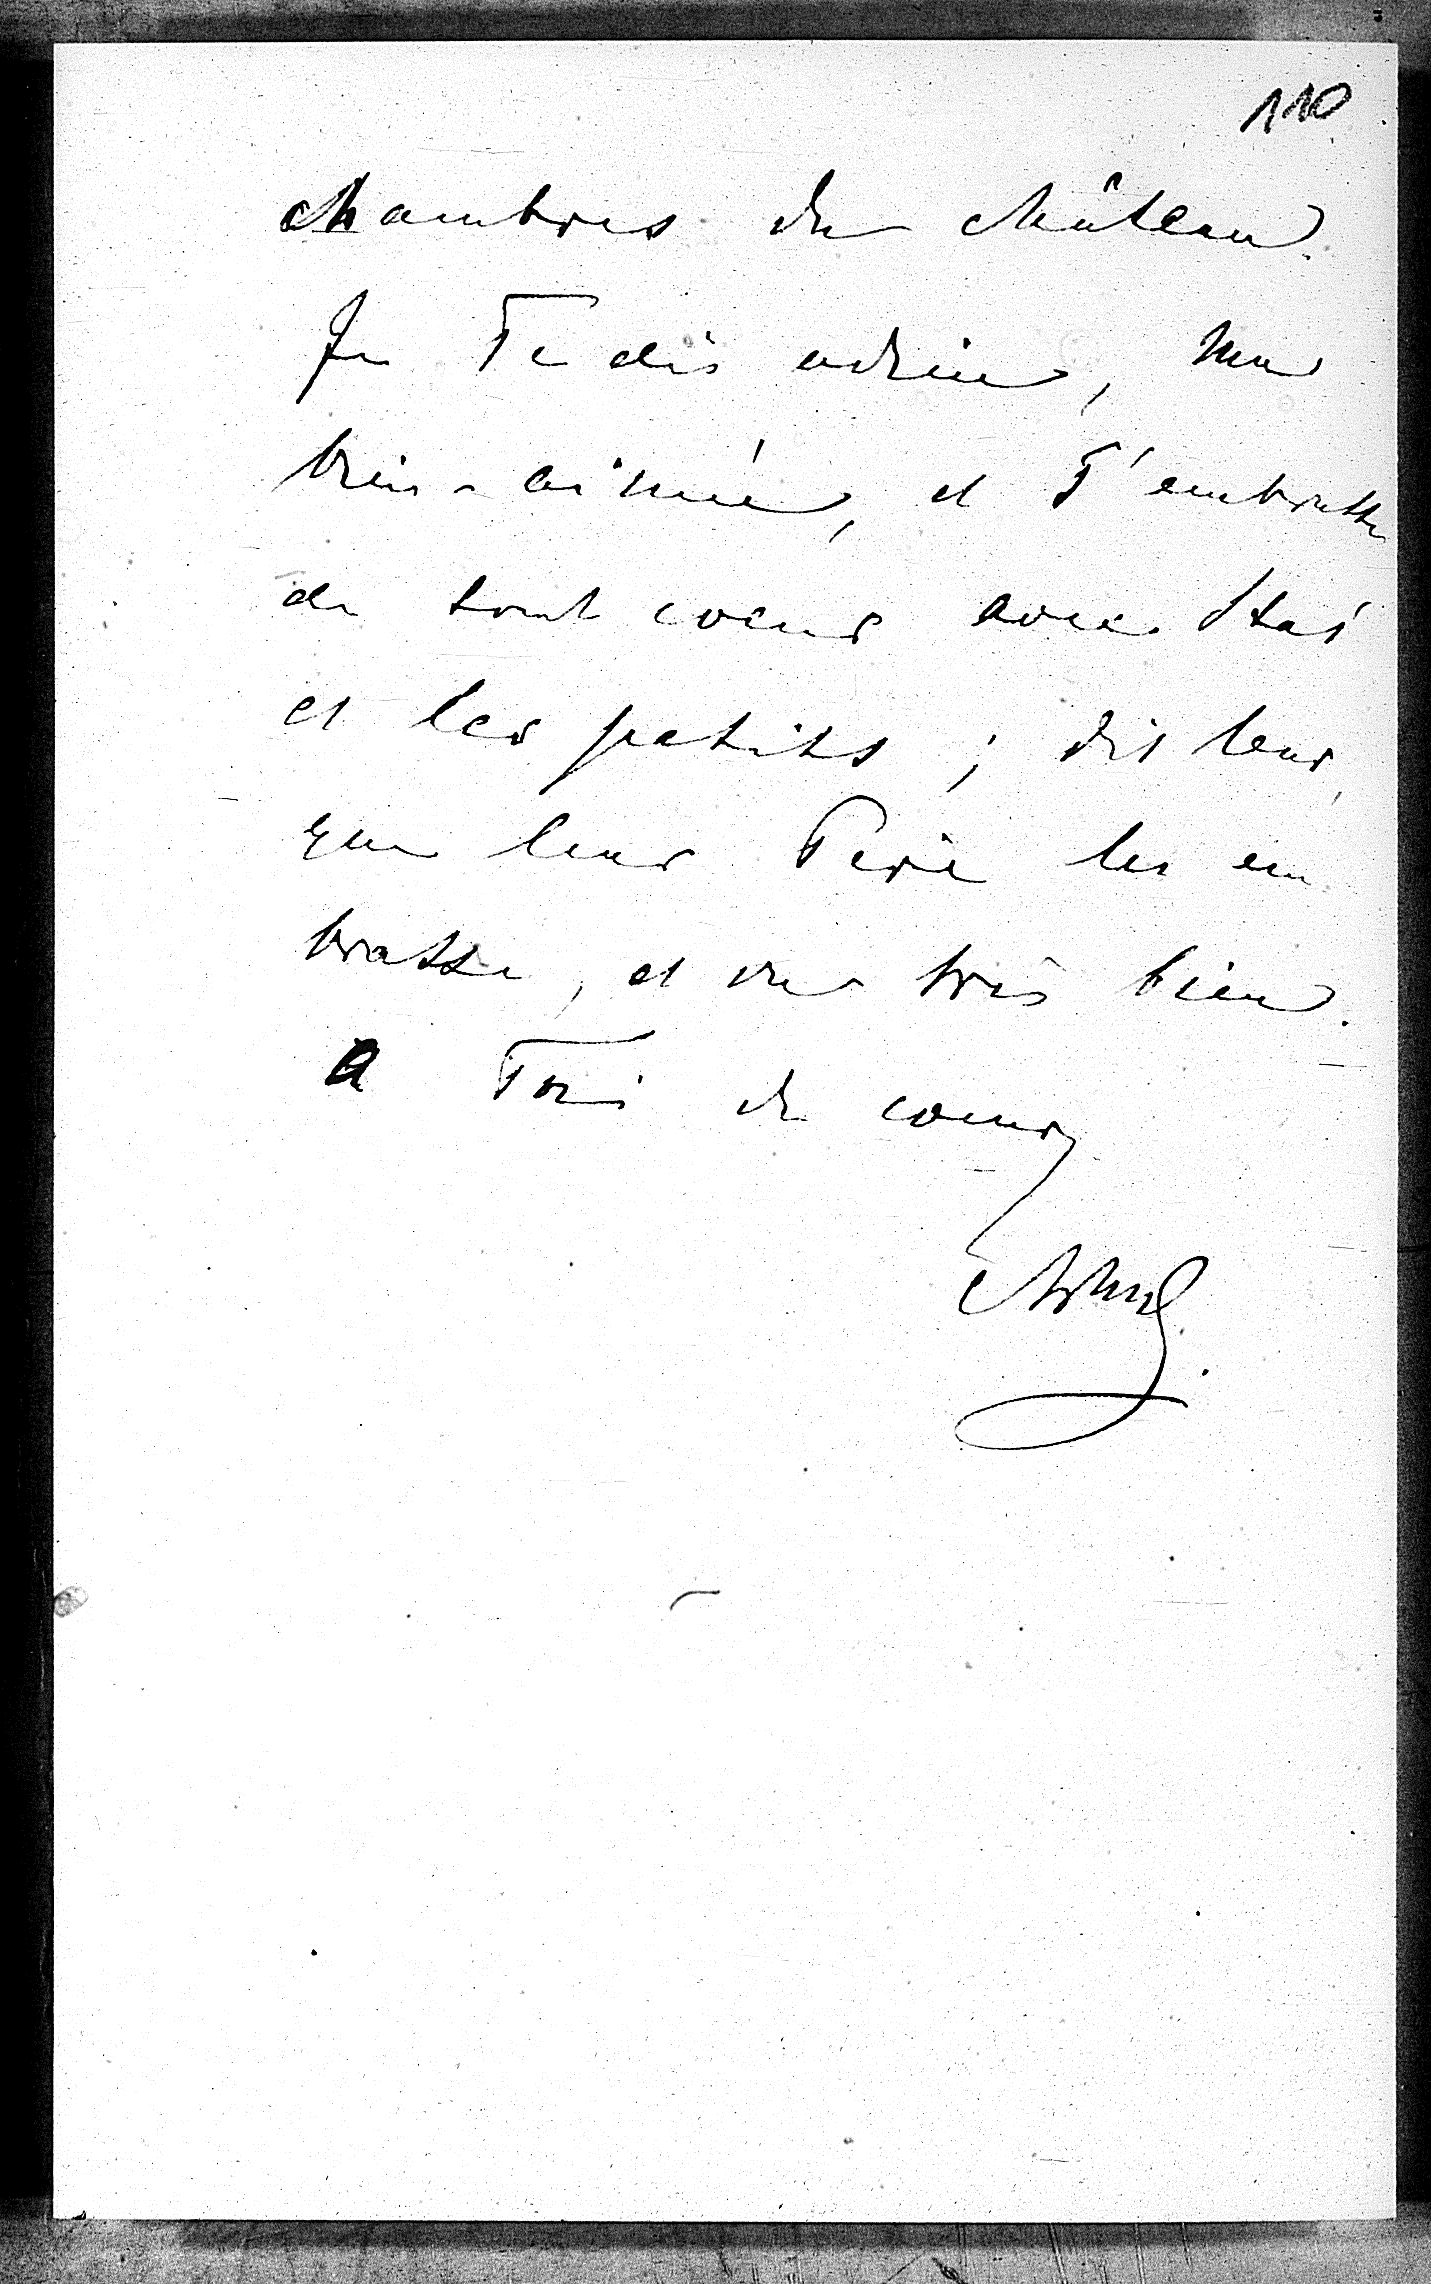 110
chambres du château.
Je Te dis adieu, ma
bien-aimée, et T'embrasse
de tout coeur avec Staś
et les petits ; dis leur,
que leur Père les em
brasse, et va très bien.
a Toi de coeur